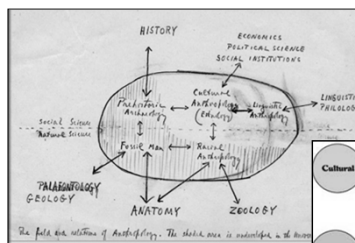 HISTORY
ECONOMICS
POLITICAL SCIENCE
SOCIAL INSTITUTIONS
Prehistoric
Archaeology
Cultural
Anthropology
(Ethnology)
Linguistic
Anthropology
LINGUISTI
PHILOLO
Social Science
Natural Science
Fossil Man
Racial
Anthropology
Cultural
PALAEONTOLOGY
GEOLOGY
ANATOMY
ZOOLOGY
The field and relations of Anthropology. The shaded area is undeveloped in the